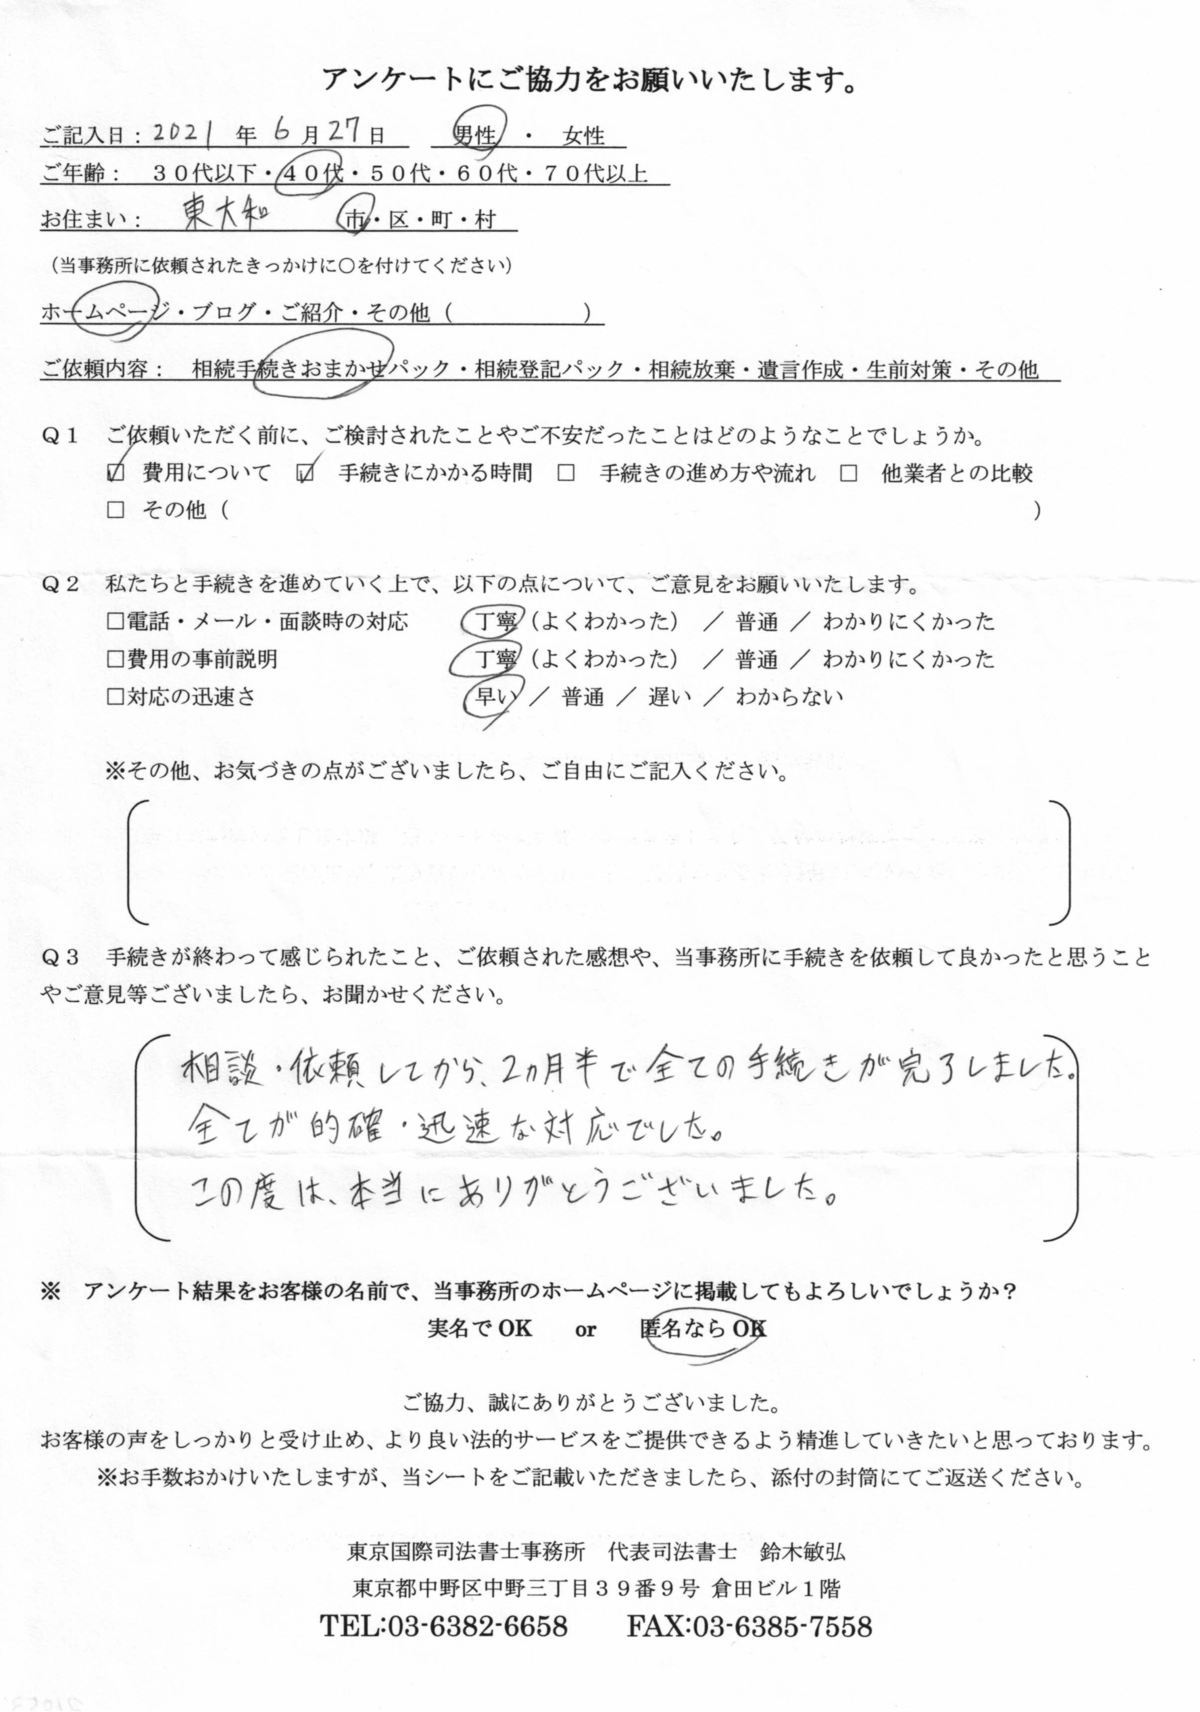 アンケートにご協力をお願いいたします。
ご記入日：2021 年 6 月 27 日　男性 ・ 女性
ご年齢：　３０代以下・４０代・５０代・６０代・７０代以上
お住まい：　東大和　市・区・町・村
（当事務所に依頼されたきっかけに○を付けてください）
ホームページ・ブログ・ご紹介・その他（　　　　　　）
ご依頼内容：　相続手続きおまかせパック・相続登記パック・相続放棄・遺言作成・生前対策・その他
Ｑ１　ご依頼いただく前に、ご検討されたことやご不安だったことはどのようなことでしょうか。
☑ 費用について ☑ 手続きにかかる時間 □ 手続きの進め方や流れ □ 他業者との比較
□ その他（　　　　　　）
Ｑ２　私たちと手続きを進めていく上で、以下の点について、ご意見をお願いいたします。
□電話・メール・面談時の対応　丁寧（よくわかった） ／ 普通 ／ わかりにくかった
□費用の事前説明　丁寧（よくわかった） ／ 普通 ／ わかりにくかった
□対応の迅速さ　早い ／ 普通 ／ 遅い ／ わからない
※その他、お気づきの点がございましたら、ご自由にご記入ください。
Ｑ３　手続きが終わって感じられたこと、ご依頼された感想や、当事務所に手続きを依頼して良かったと思うこと
やご意見等ございましたら、お聞かせください。
相談・依頼してから、2ヵ月半で全ての手続きが完了しました。
全てが的確・迅速な対応でした。
この度は、本当にありがとうございました。
※　アンケート結果をお客様の名前で、当事務所のホームページに掲載してもよろしいでしょうか？
実名で OK　or　匿名なら OK
ご協力、誠にありがとうございました。
お客様の声をしっかりと受け止め、より良い法的サービスをご提供できるよう精進していきたいと思っております。
※お手数おかけいたしますが、当シートをご記載いただきましたら、添付の封筒にてご返送ください。
東京国際司法書士事務所　代表司法書士　鈴木敏弘
東京都中野区中野三丁目３９番９号 倉田ビル１階
TEL:03-6382-6658　FAX:03-6385-7558